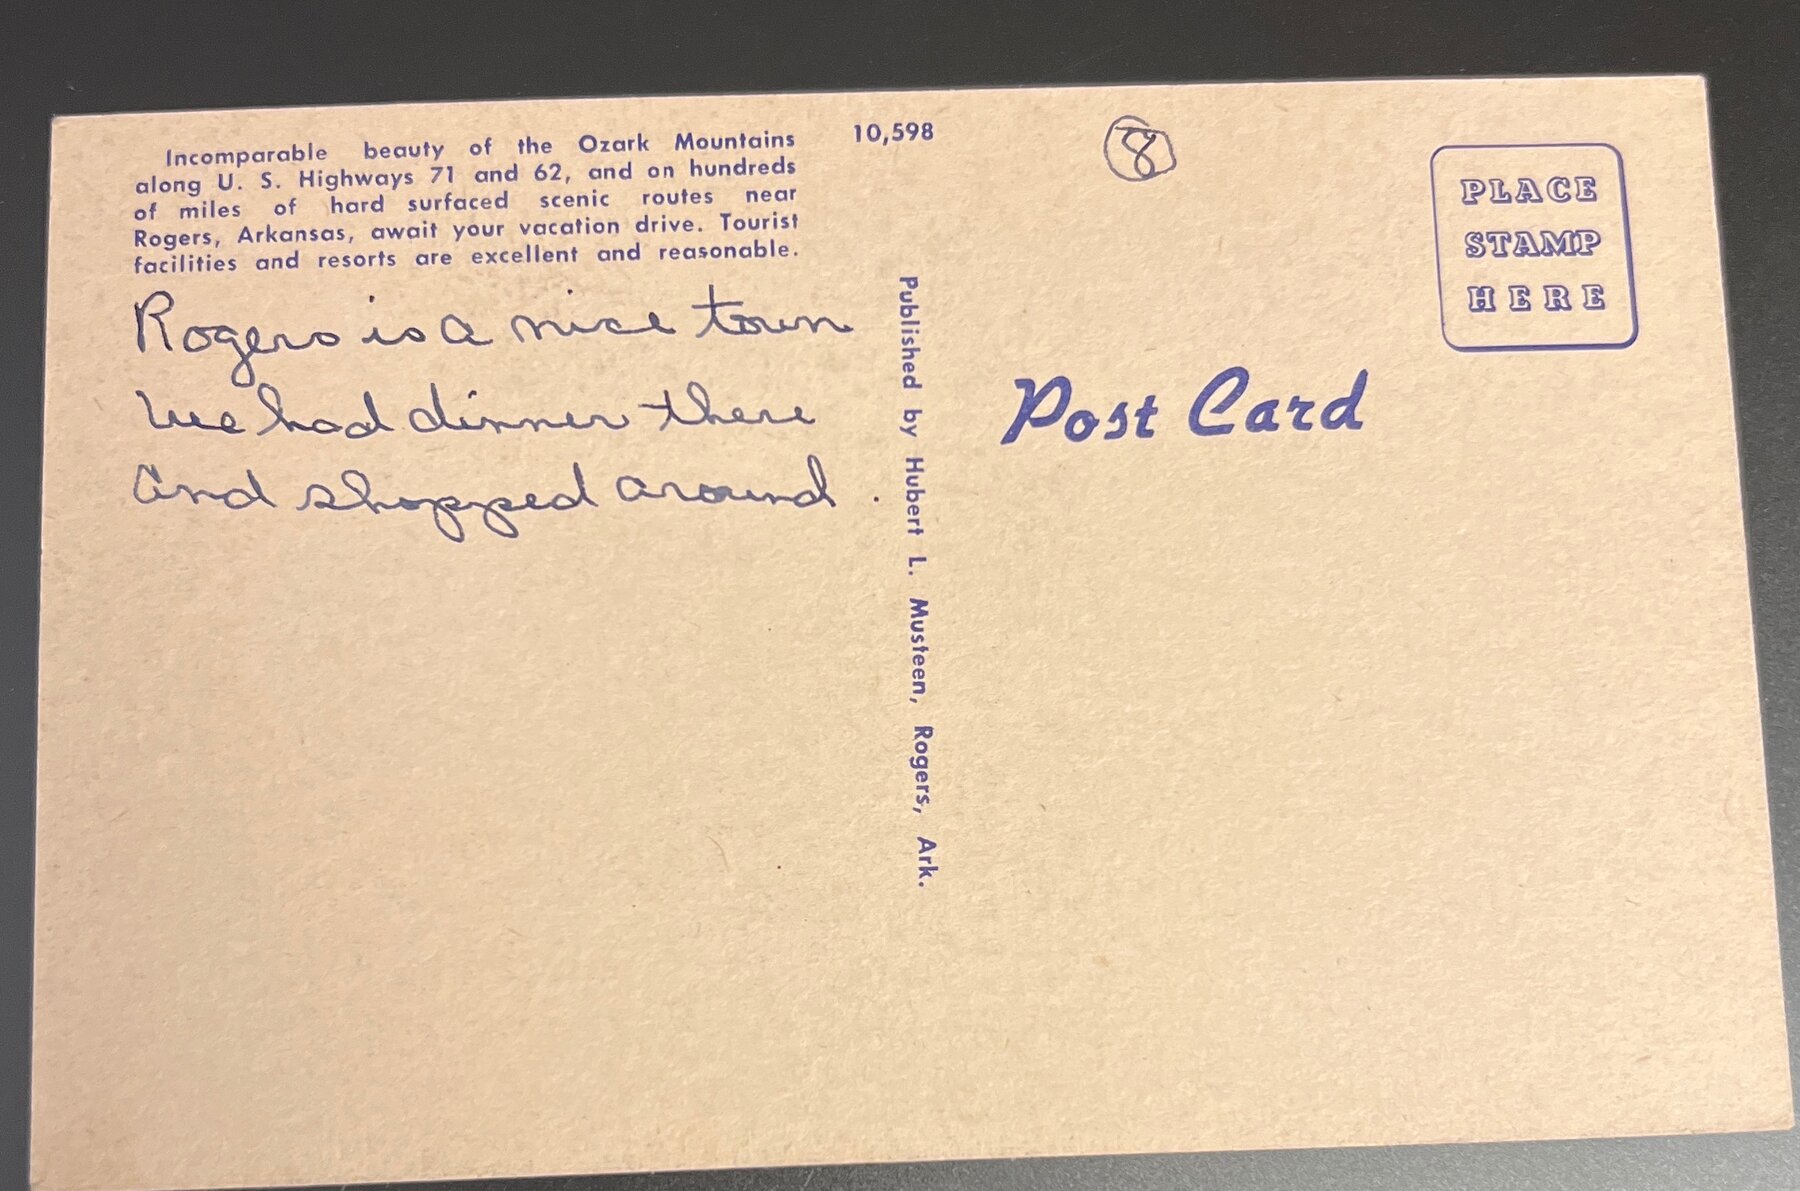 Incomparable beauty of the Ozark Mountains
along U. S. Highways 71 and 62, and on hundreds
of miles of hard surfaced scenic routes near
Rogers, Arkansas, await your vacation drive. Tourist
facilities and resorts are excellent and reasonable.
Rogers is a nice town
We had dinner there
and shopped around.
10,598
Published by Hubert L. Musteen, Rogers, Ark.
8
PLACE
STAMP
HERE
Post Card